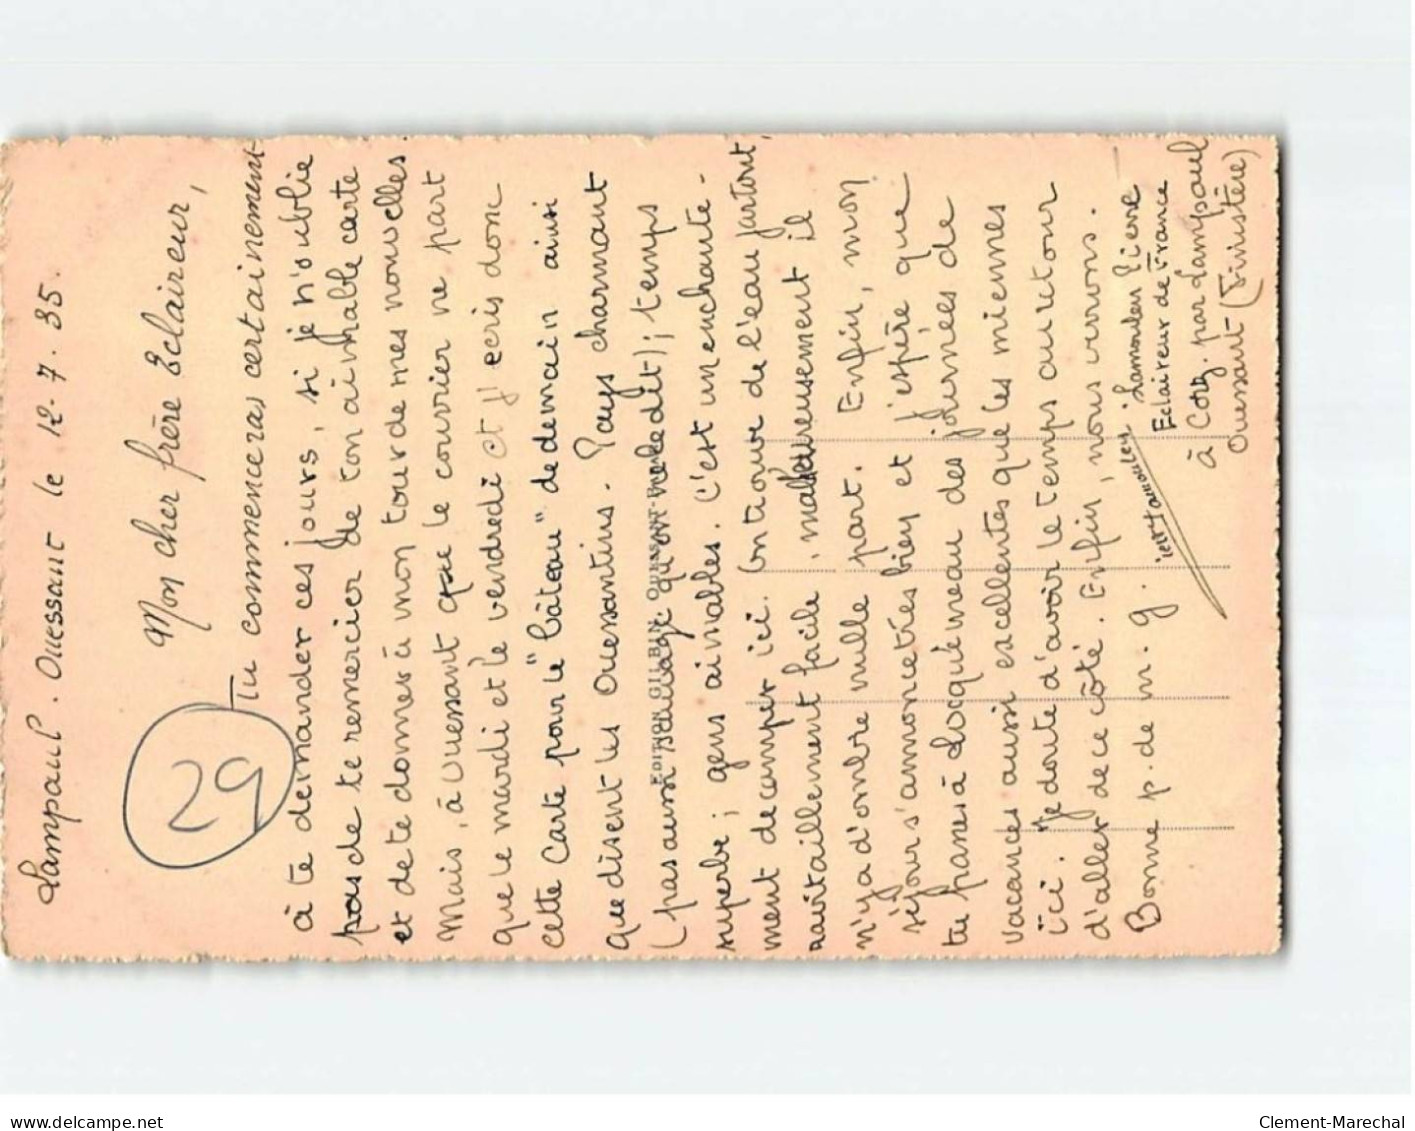 Lampaul. Ouessant le 12-7.35.
Mon cher frère Eclaireur,
29
Tu commenceras certainement
à te demander ces jours, si je n'oublie
pas de te remercier de ton aimable carte
et de te donner à mon tour de mes nouvelles.
Mais, à Ouessant que le courrier ne part
que le mardi et le vendredi et j'écris donc
cette carte pour le "bâteau" de demain ainsi
que disent les Ouessantins. Pays charmant
(pas aussi sauvage qu'on ne le dit); temps
EDITION GILBIN OUESSANT
superbe; gens aimables. C'est un enchante-
ment de camper ici. On trouve de l'eau partout,
ravitaillement facile, malheureusement il
n'y a d'ombre nulle part. Enfin, mon
séjour s'annonce très bien et j'espère que
tu passes à Locquémeau des journées de
vacances aussi excellentes que les miennes
ici. Je doute d'avoir le temps autour
d'aller de ce côté. Enfin, nous verrons.
Bonne p. de m. g.
Lamoulen Pierre
Eclaireur de France
à Corz. par Lampaul
Ouessant (Finistère)
delcampe.net
Clement-Marechal